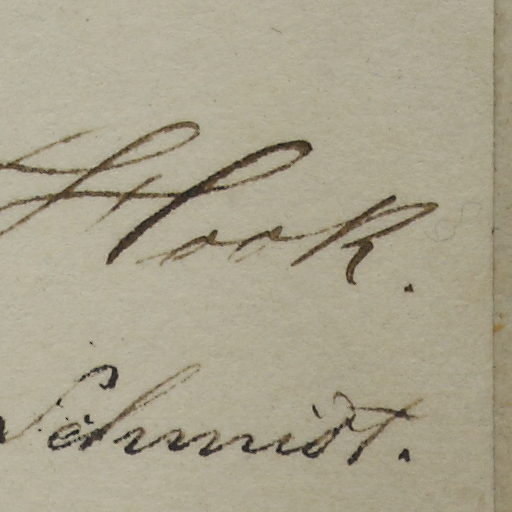 Hook.
Schmidt.